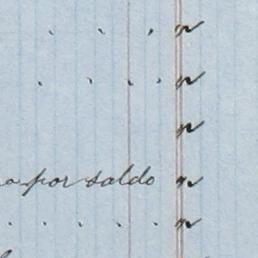 . . . "
. . . . "
"
por saldo "
. . . . "